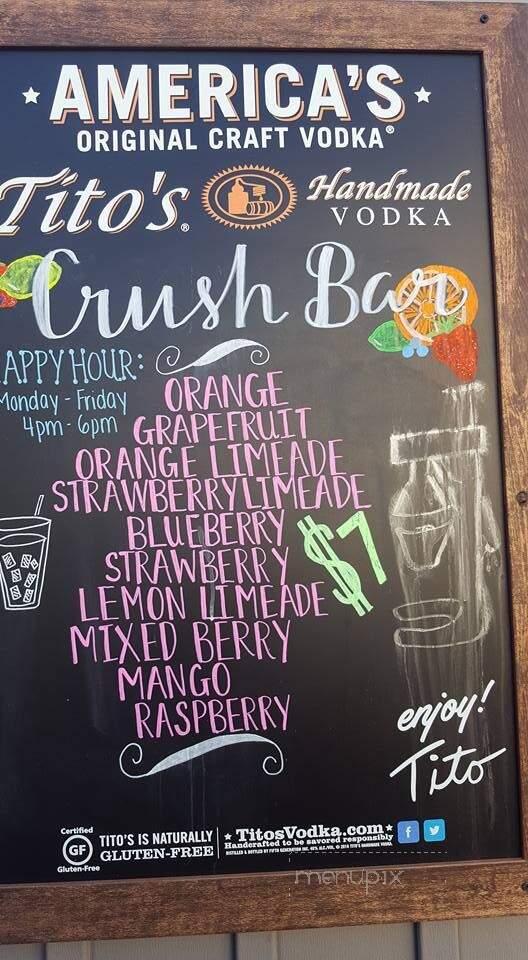 AMERICA'S
ORIGINAL CRAFT VODKA®
Tito's® Handmade
VODKA
Crush Bar
APPY HOUR:
Monday - Friday
4pm - 6pm
ORANGE
GRAPEFRUIT
ORANGE LIMEADE
STRAWBERRY LIMEADE
BLUEBERRY
STRAWBERRY
LEMON LIMEADE
MIXED BERRY
MANGO
RASPBERRY
$7
enjoy!
Tito
Certified
GF
Gluten-Free
TITO'S IS NATURALLY
GLUTEN-FREE
TitosVodka.com
Handcrafted to be savored responsibly
DISTILLED & BOTTLED BY FIFTH GENERATION INC. 40% ALC./VOL. © 2014 TITO'S HANDMADE VODKA
menupix